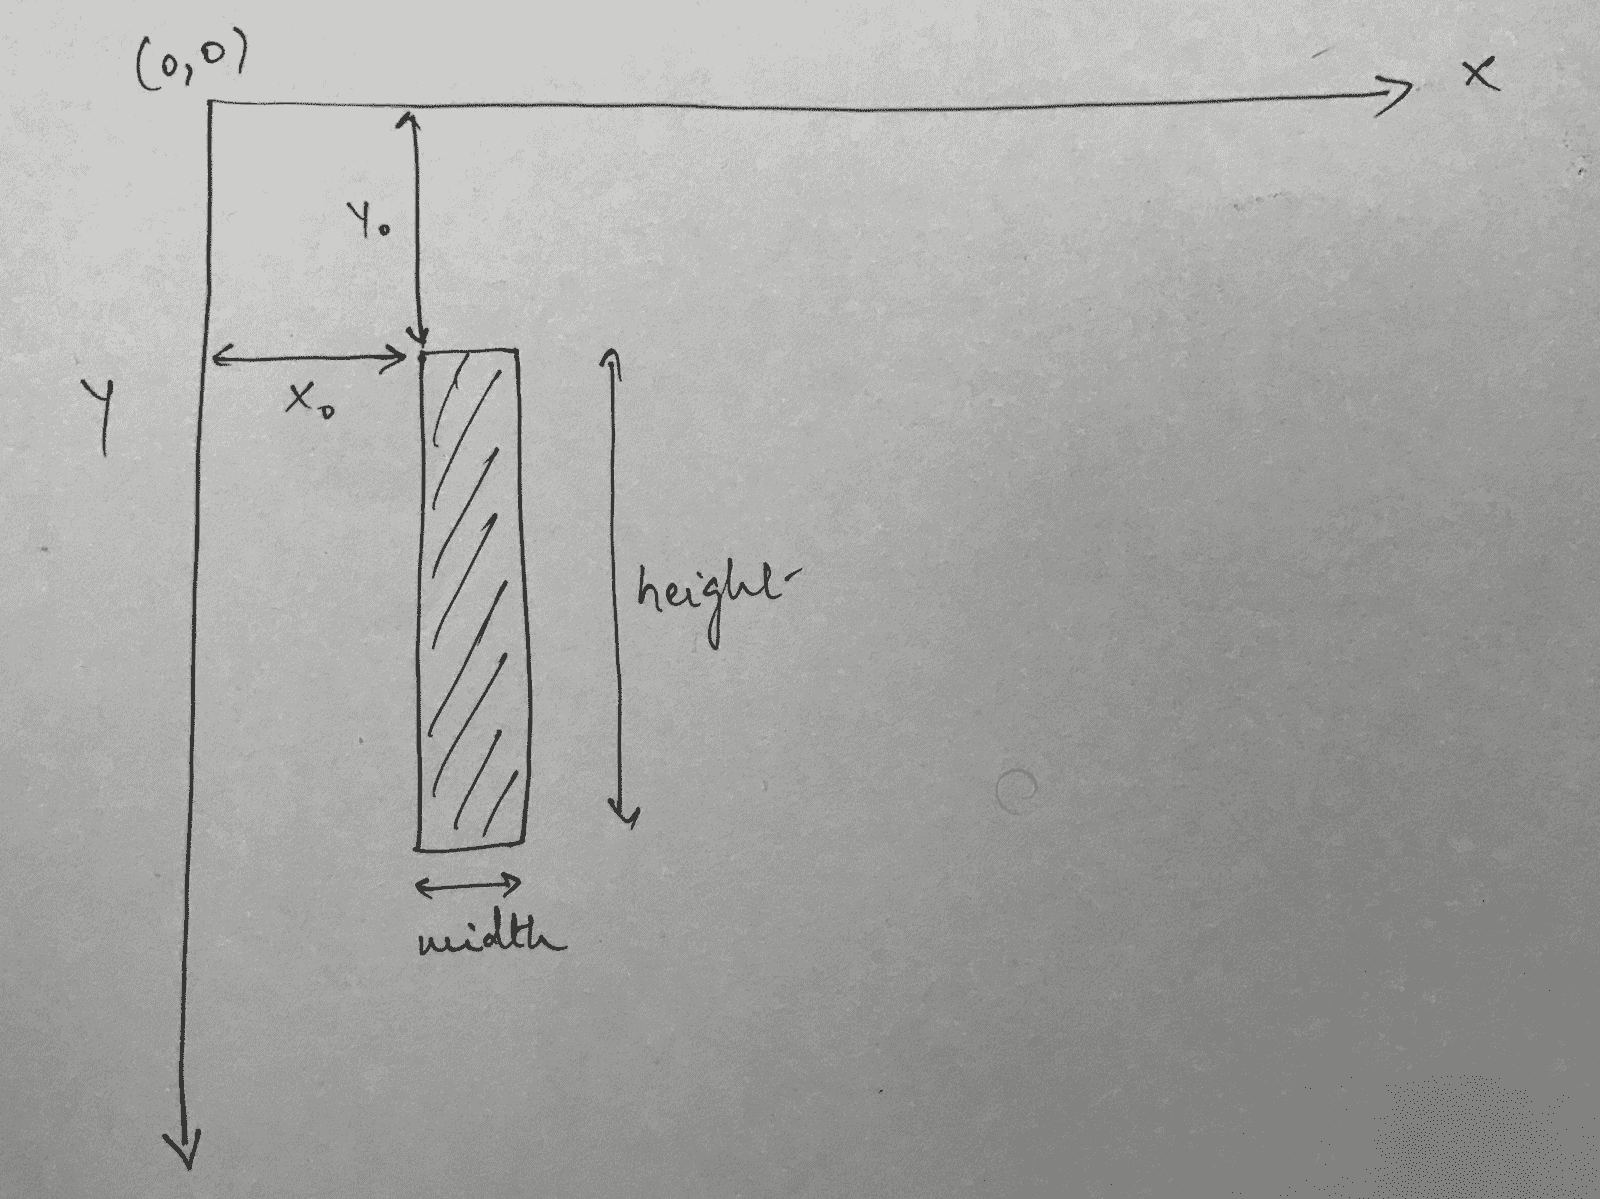 (0,0)
X
Y₀
Y
X₀
height
width